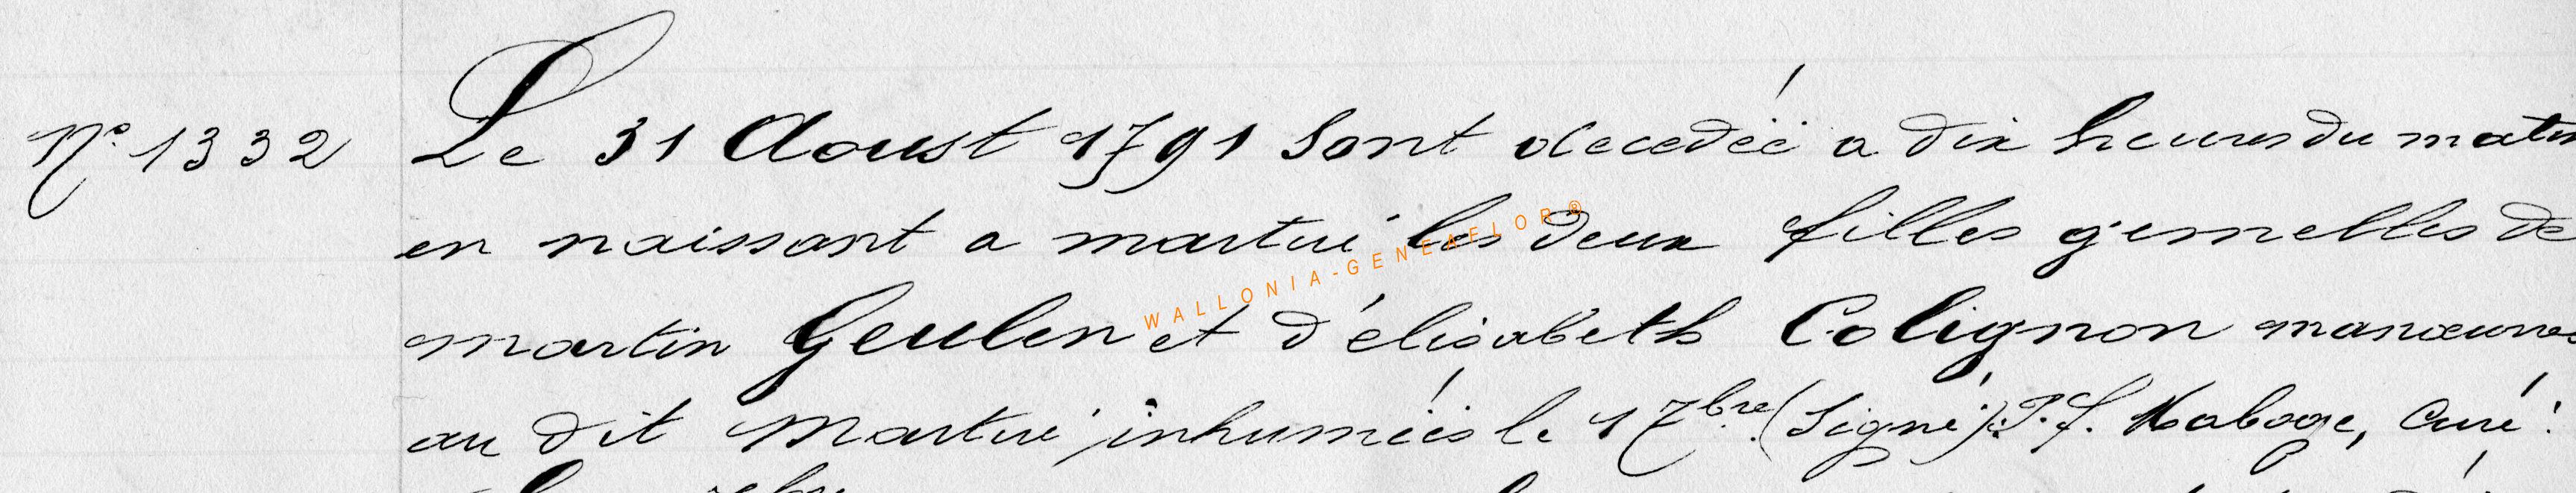 N° 1332 Le 31 Aoust 1791 Sont decedéé a dix heures du matin
en naissant a martué les deux filles gemelles de
WALLONIA-GENEAFLOR®
martin Geulen et d'élisabeth Colignon manœuvres
au dit Martué inhumées le 1 7bre (Signé): P. f. Habage, Curé.